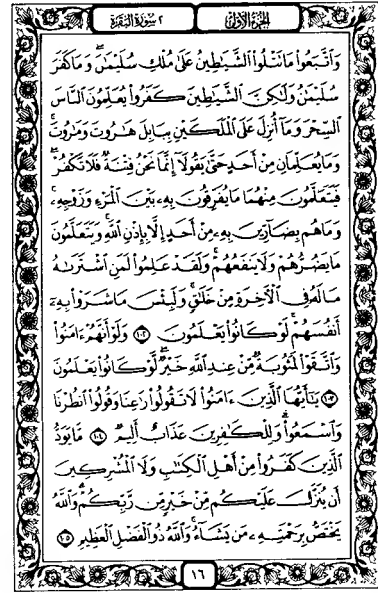 الجزء الأول ٢ سورة البقرة
وَٱتَّبَعُوا۟ مَا تَتْلُوا۟ ٱلشَّيَٰطِينُ عَلَىٰ مُلْكِ سُلَيْمَٰنَ ۖ وَمَا كَفَرَ
سُلَيْمَٰنُ وَلَٰكِنَّ ٱلشَّيَٰطِينَ كَفَرُوا۟ يُعَلِّمُونَ ٱلنَّاسَ
ٱلسِّحْرَ وَمَآ أُنزِلَ عَلَى ٱلْمَلَكَيْنِ بِبَابِلَ هَٰرُوتَ وَمَٰرُوتَ ۚ
وَمَا يُعَلِّمَانِ مِنْ أَحَدٍ حَتَّىٰ يَقُولَآ إِنَّمَا نَحْنُ فِتْنَةٌ فَلَا تَكْفُرْ ۖ
فَيَتَعَلَّمُونَ مِنْهُمَا مَا يُفَرِّقُونَ بِهِۦ بَيْنَ ٱلْمَرْءِ وَزَوْجِهِۦ ۚ
وَمَا هُم بِضَآرِّينَ بِهِۦ مِنْ أَحَدٍ إِلَّا بِإِذْنِ ٱللَّهِ ۚ وَيَتَعَلَّمُونَ
مَا يَضُرُّهُمْ وَلَا يَنفَعُهُمْ ۚ وَلَقَدْ عَلِمُوا۟ لَمَنِ ٱشْتَرَىٰهُ
مَا لَهُۥ فِى ٱلْـَٔاخِرَةِ مِنْ خَلَٰقٍ ۚ وَلَبِئْسَ مَا شَرَوْا۟ بِهِۦٓ
أَنفُسَهُمْ ۚ لَوْ كَانُوا۟ يَعْلَمُونَ ١٠٢ وَلَوْ أَنَّهُمْ ءَامَنُوا۟
وَٱتَّقَوْا۟ لَمَثُوبَةٌ مِّنْ عِندِ ٱللَّهِ خَيْرٌ ۖ لَّوْ كَانُوا۟ يَعْلَمُونَ
١٠٣ يَٰٓأَيُّهَا ٱلَّذِينَ ءَامَنُوا۟ لَا تَقُولُوا۟ رَٰعِنَا وَقُولُوا۟ ٱنظُرْنَا
وَٱسْمَعُوا۟ ۗ وَلِلْكَٰفِرِينَ عَذَابٌ أَلِيمٌ ١٠٤ مَّا يَوَدُّ
ٱلَّذِينَ كَفَرُوا۟ مِنْ أَهْلِ ٱلْكِتَٰبِ وَلَا ٱلْمُشْرِكِينَ
أَن يُنَزَّلَ عَلَيْكُم مِّنْ خَيْرٍ مِّن رَّبِّكُمْ ۗ وَٱللَّهُ
يَخْتَصُّ بِرَحْمَتِهِۦ مَن يَشَآءُ ۚ وَٱللَّهُ ذُو ٱلْفَضْلِ ٱلْعَظِيمِ ١٠٥
١٦